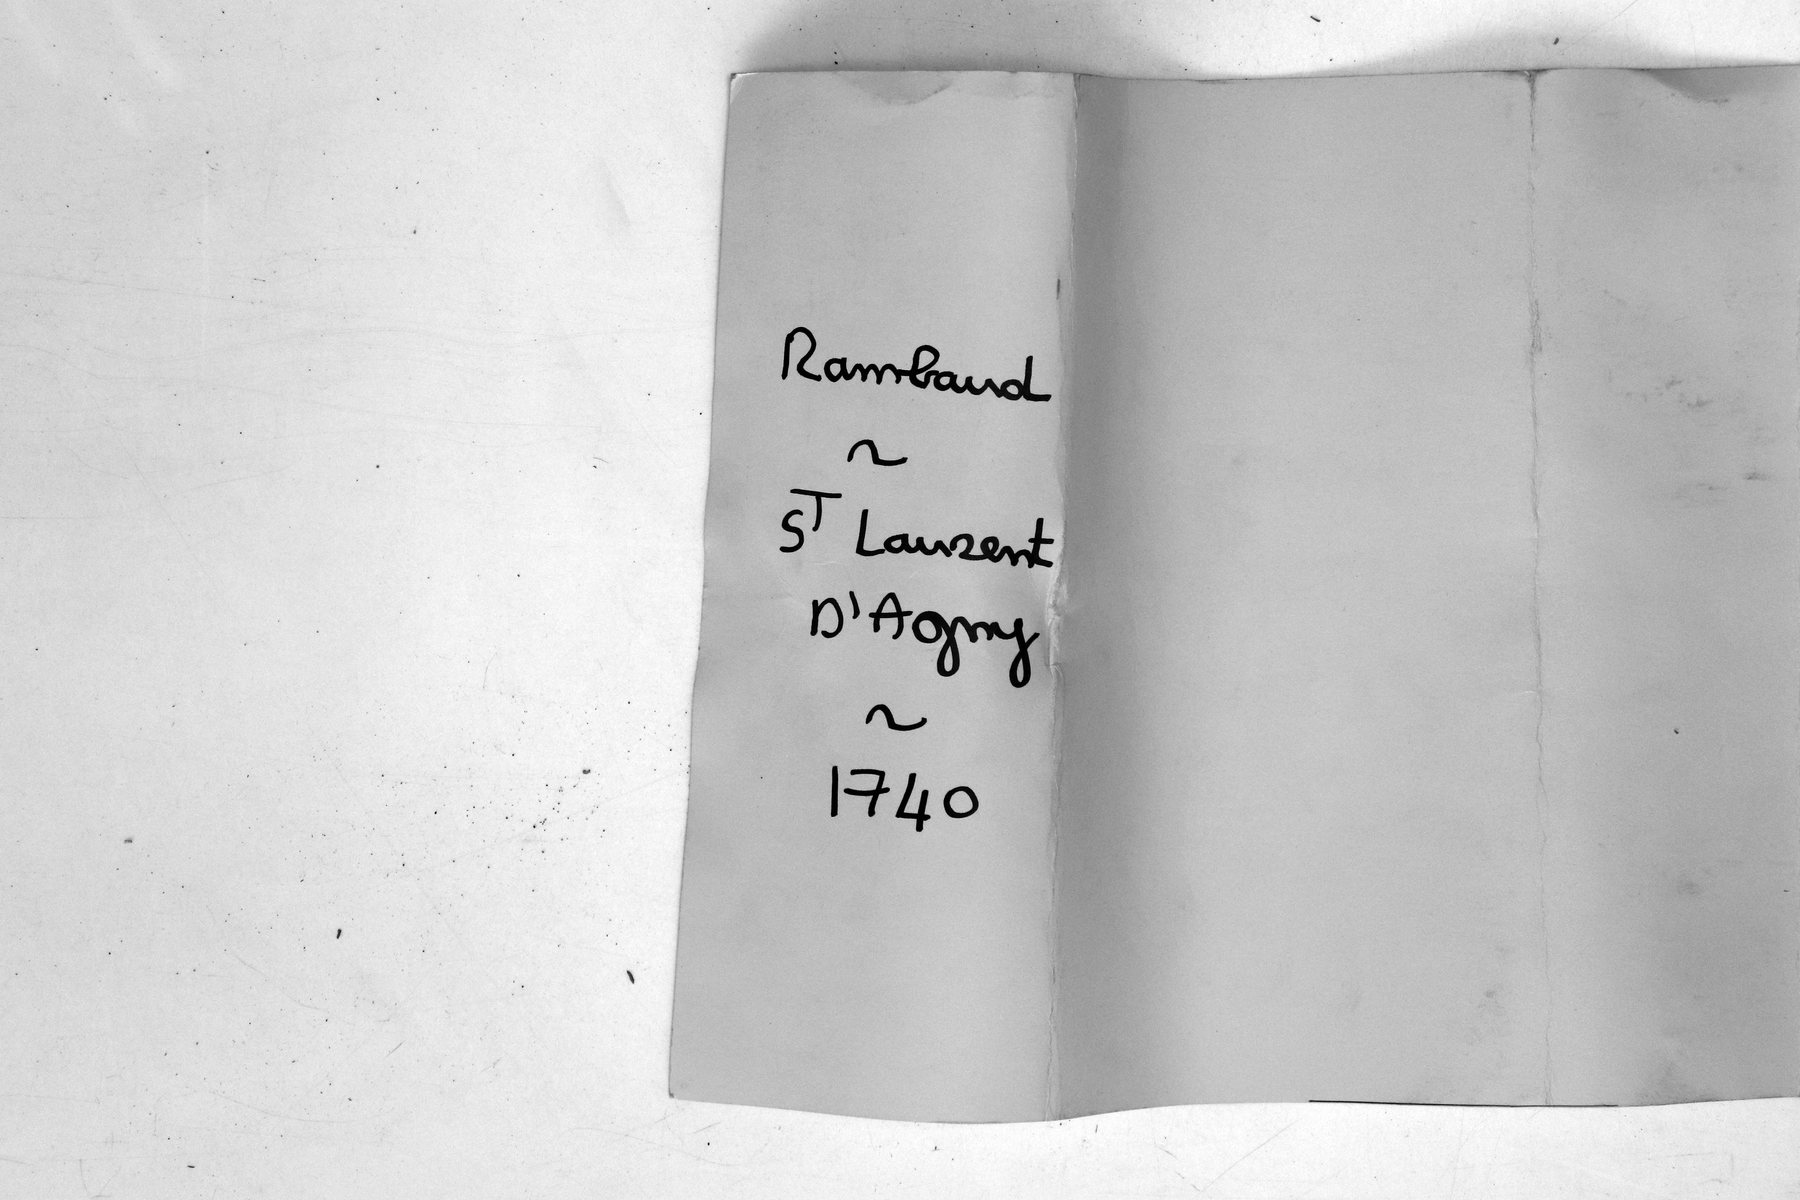 Rambaud
~
ST Laurent
D'Agny
~
1740